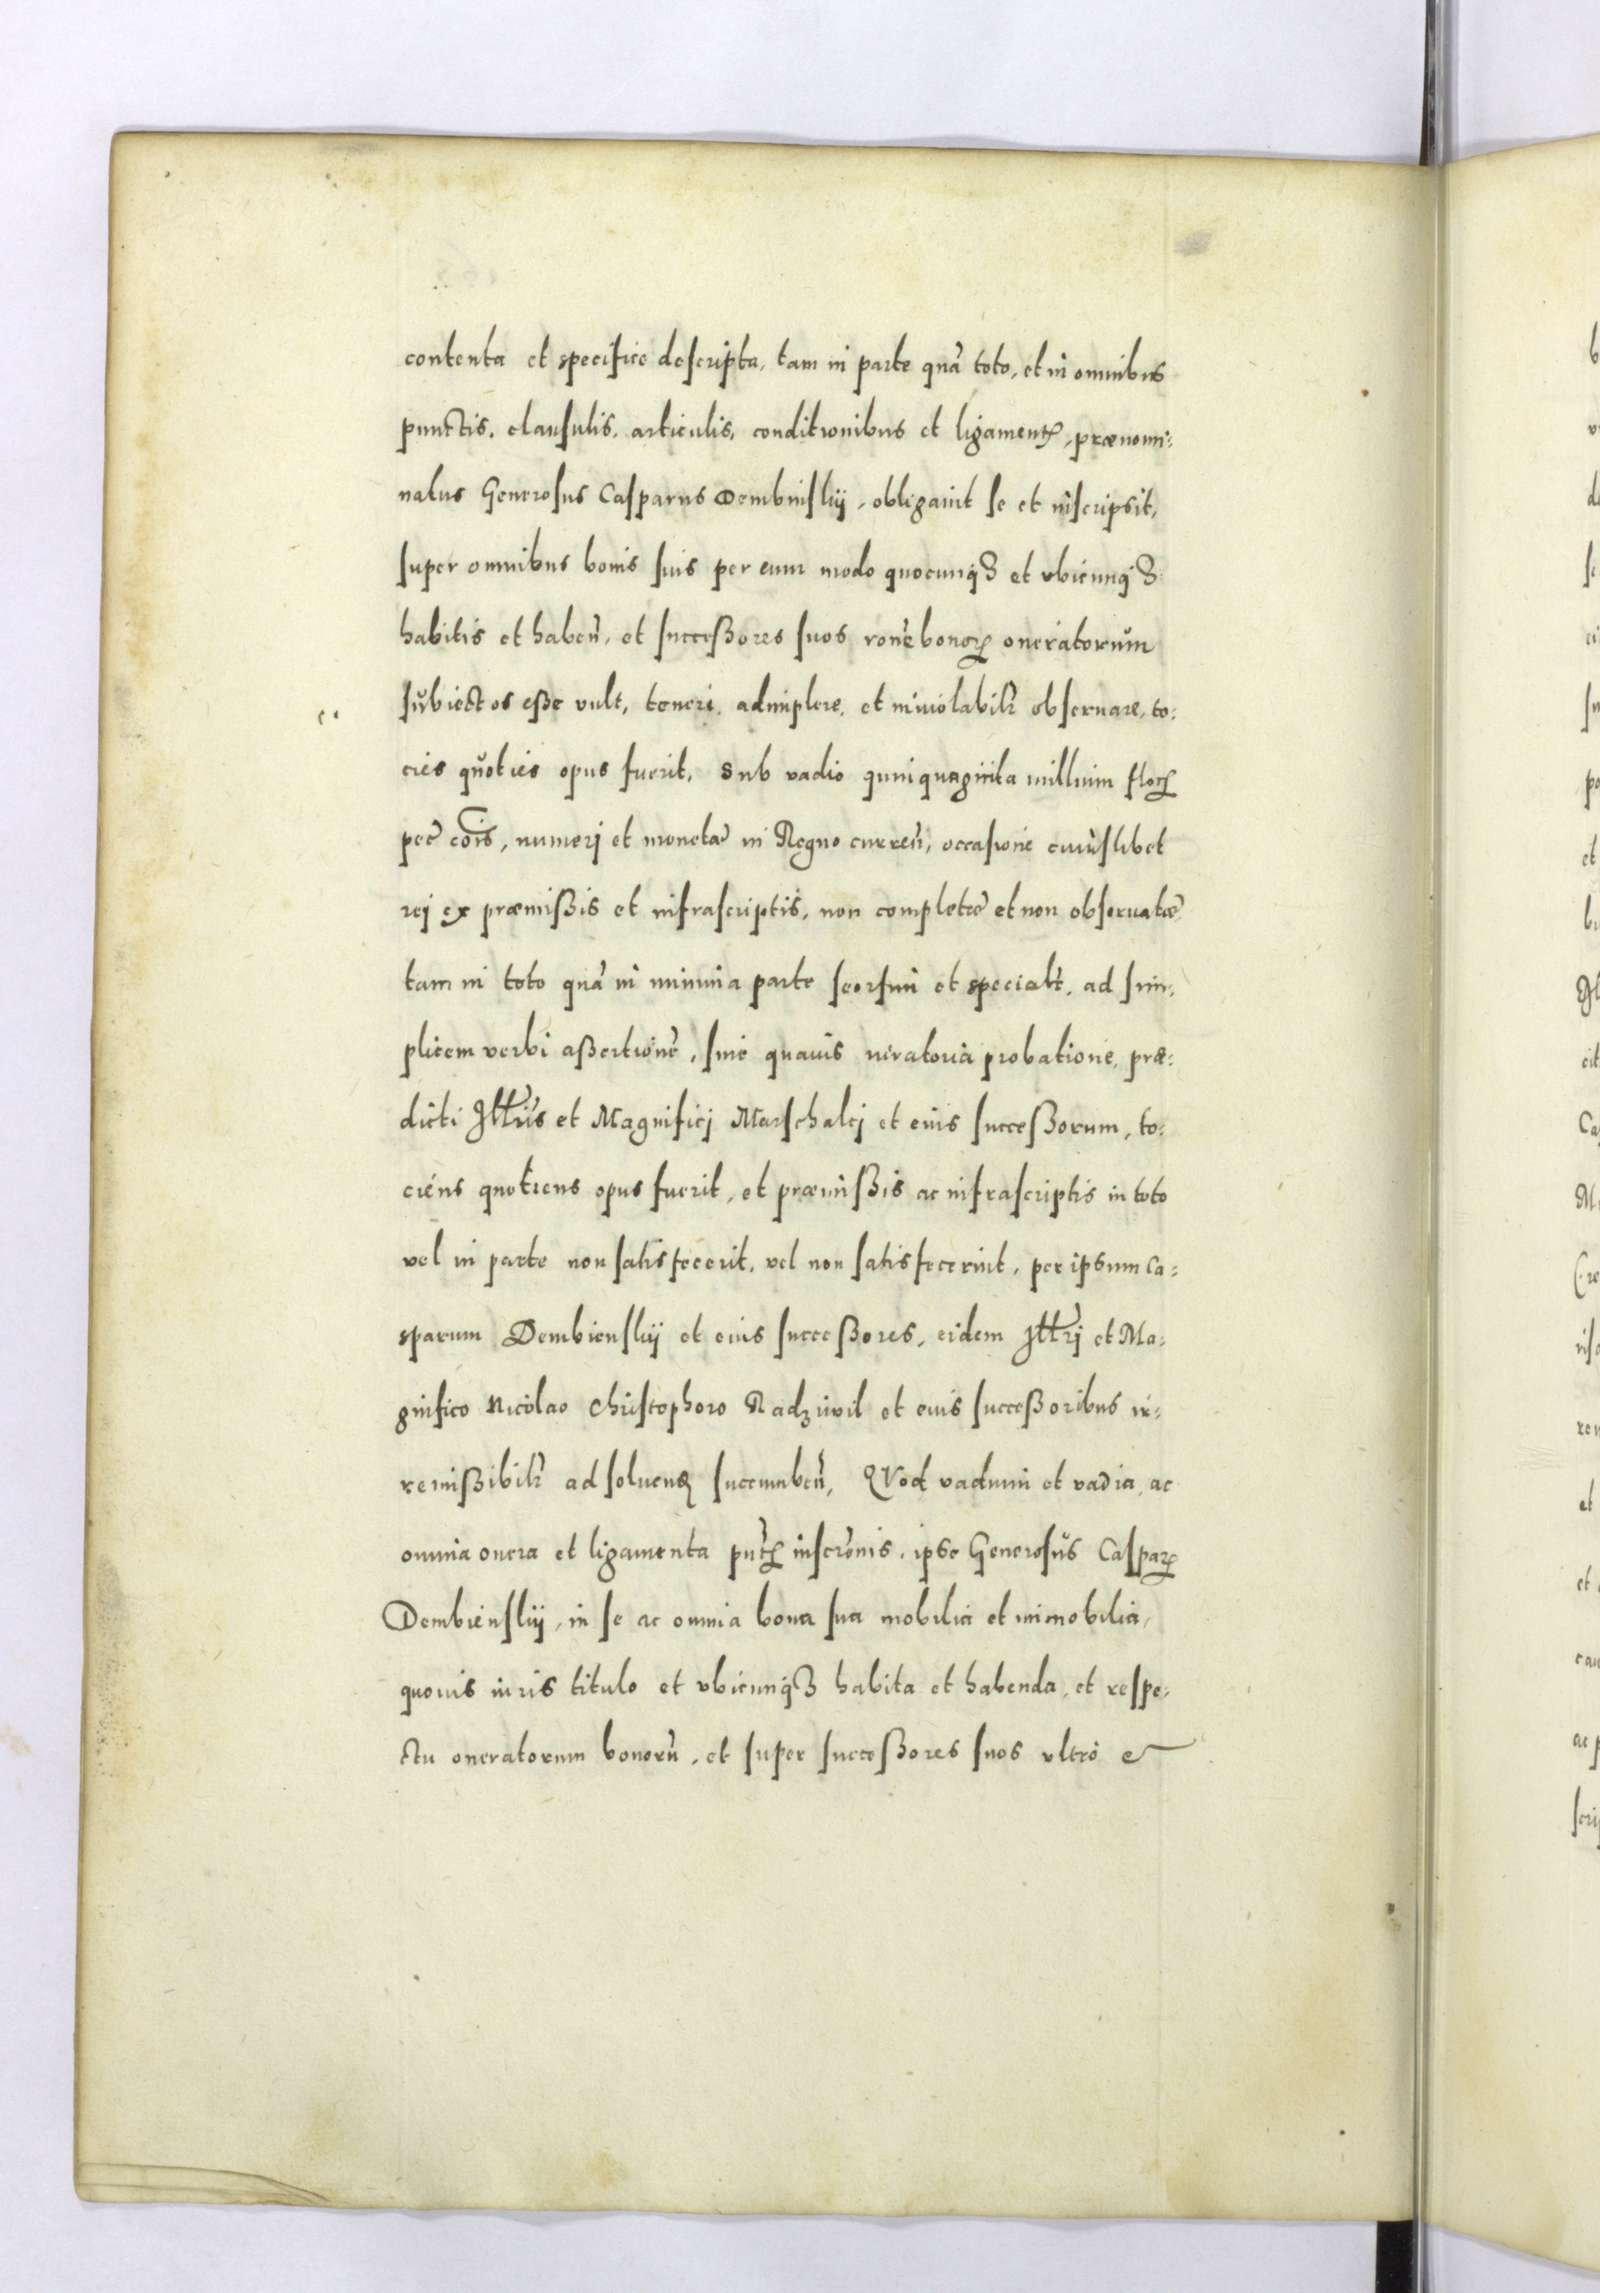 contenta et specifice descripta, tam in parte quã toto, et in omnibus
punctis, clausulis, articulis, conditionibus et ligamentꝭ, prænomi:
natus Generosus Casparus Dembinskij, obligauit se et inscripsit,
super omnibus bonis suis per eum modo quocunqꝫ et vbicunqꝫ
habitis et habeñ, et successores suos roñe bonoꝝ oneratorum
subiectos esse vult, teneri, adimplere, et inuiolabilr̃ obseruare, to:
cies quoties opus fuerit, Sub vadio quinquaginta millium floꝝ
pec̃ cõis, numeri et monetæ in Regno curreñ, occasione cuiuslibet
rei ex præmissis et infrascriptis, non completæ et non obseruatæ
tam in toto quã in minima parte seorsim et specialr̃, ad sim:
plicem verbi assertionẽ, sine quauis iuratoria probatione, præ:
dicti Illr̃is et Magnifici Marschalci et eius successorum, to:
ciens quotiens opus fuerit, et præmissis ac infrascriptis in toto
vel in parte non satisfecerit, vel non satisfecerint, per ipsum Ca:
sparum Dembienskij et eius successores, eidem Illr̃i et Ma:
gnifico Nicolao Christophoro Radziwil et eius successoribus ir:
remissibilr̃ ad soluenꝸ succumbeñ, Quod vadium et vadia, ac
omnia onera et ligamenta pñtꝭ inscrõnis, ipse Generosus Casparꝰ
Dembienskij, in se ac omnia bona sua mobilia et immobilia,
quouis iuris titulo et vbicunqꝫ habita et habenda, et respe:
ctu oneratorum bonorũ, et super successores suos vltro &